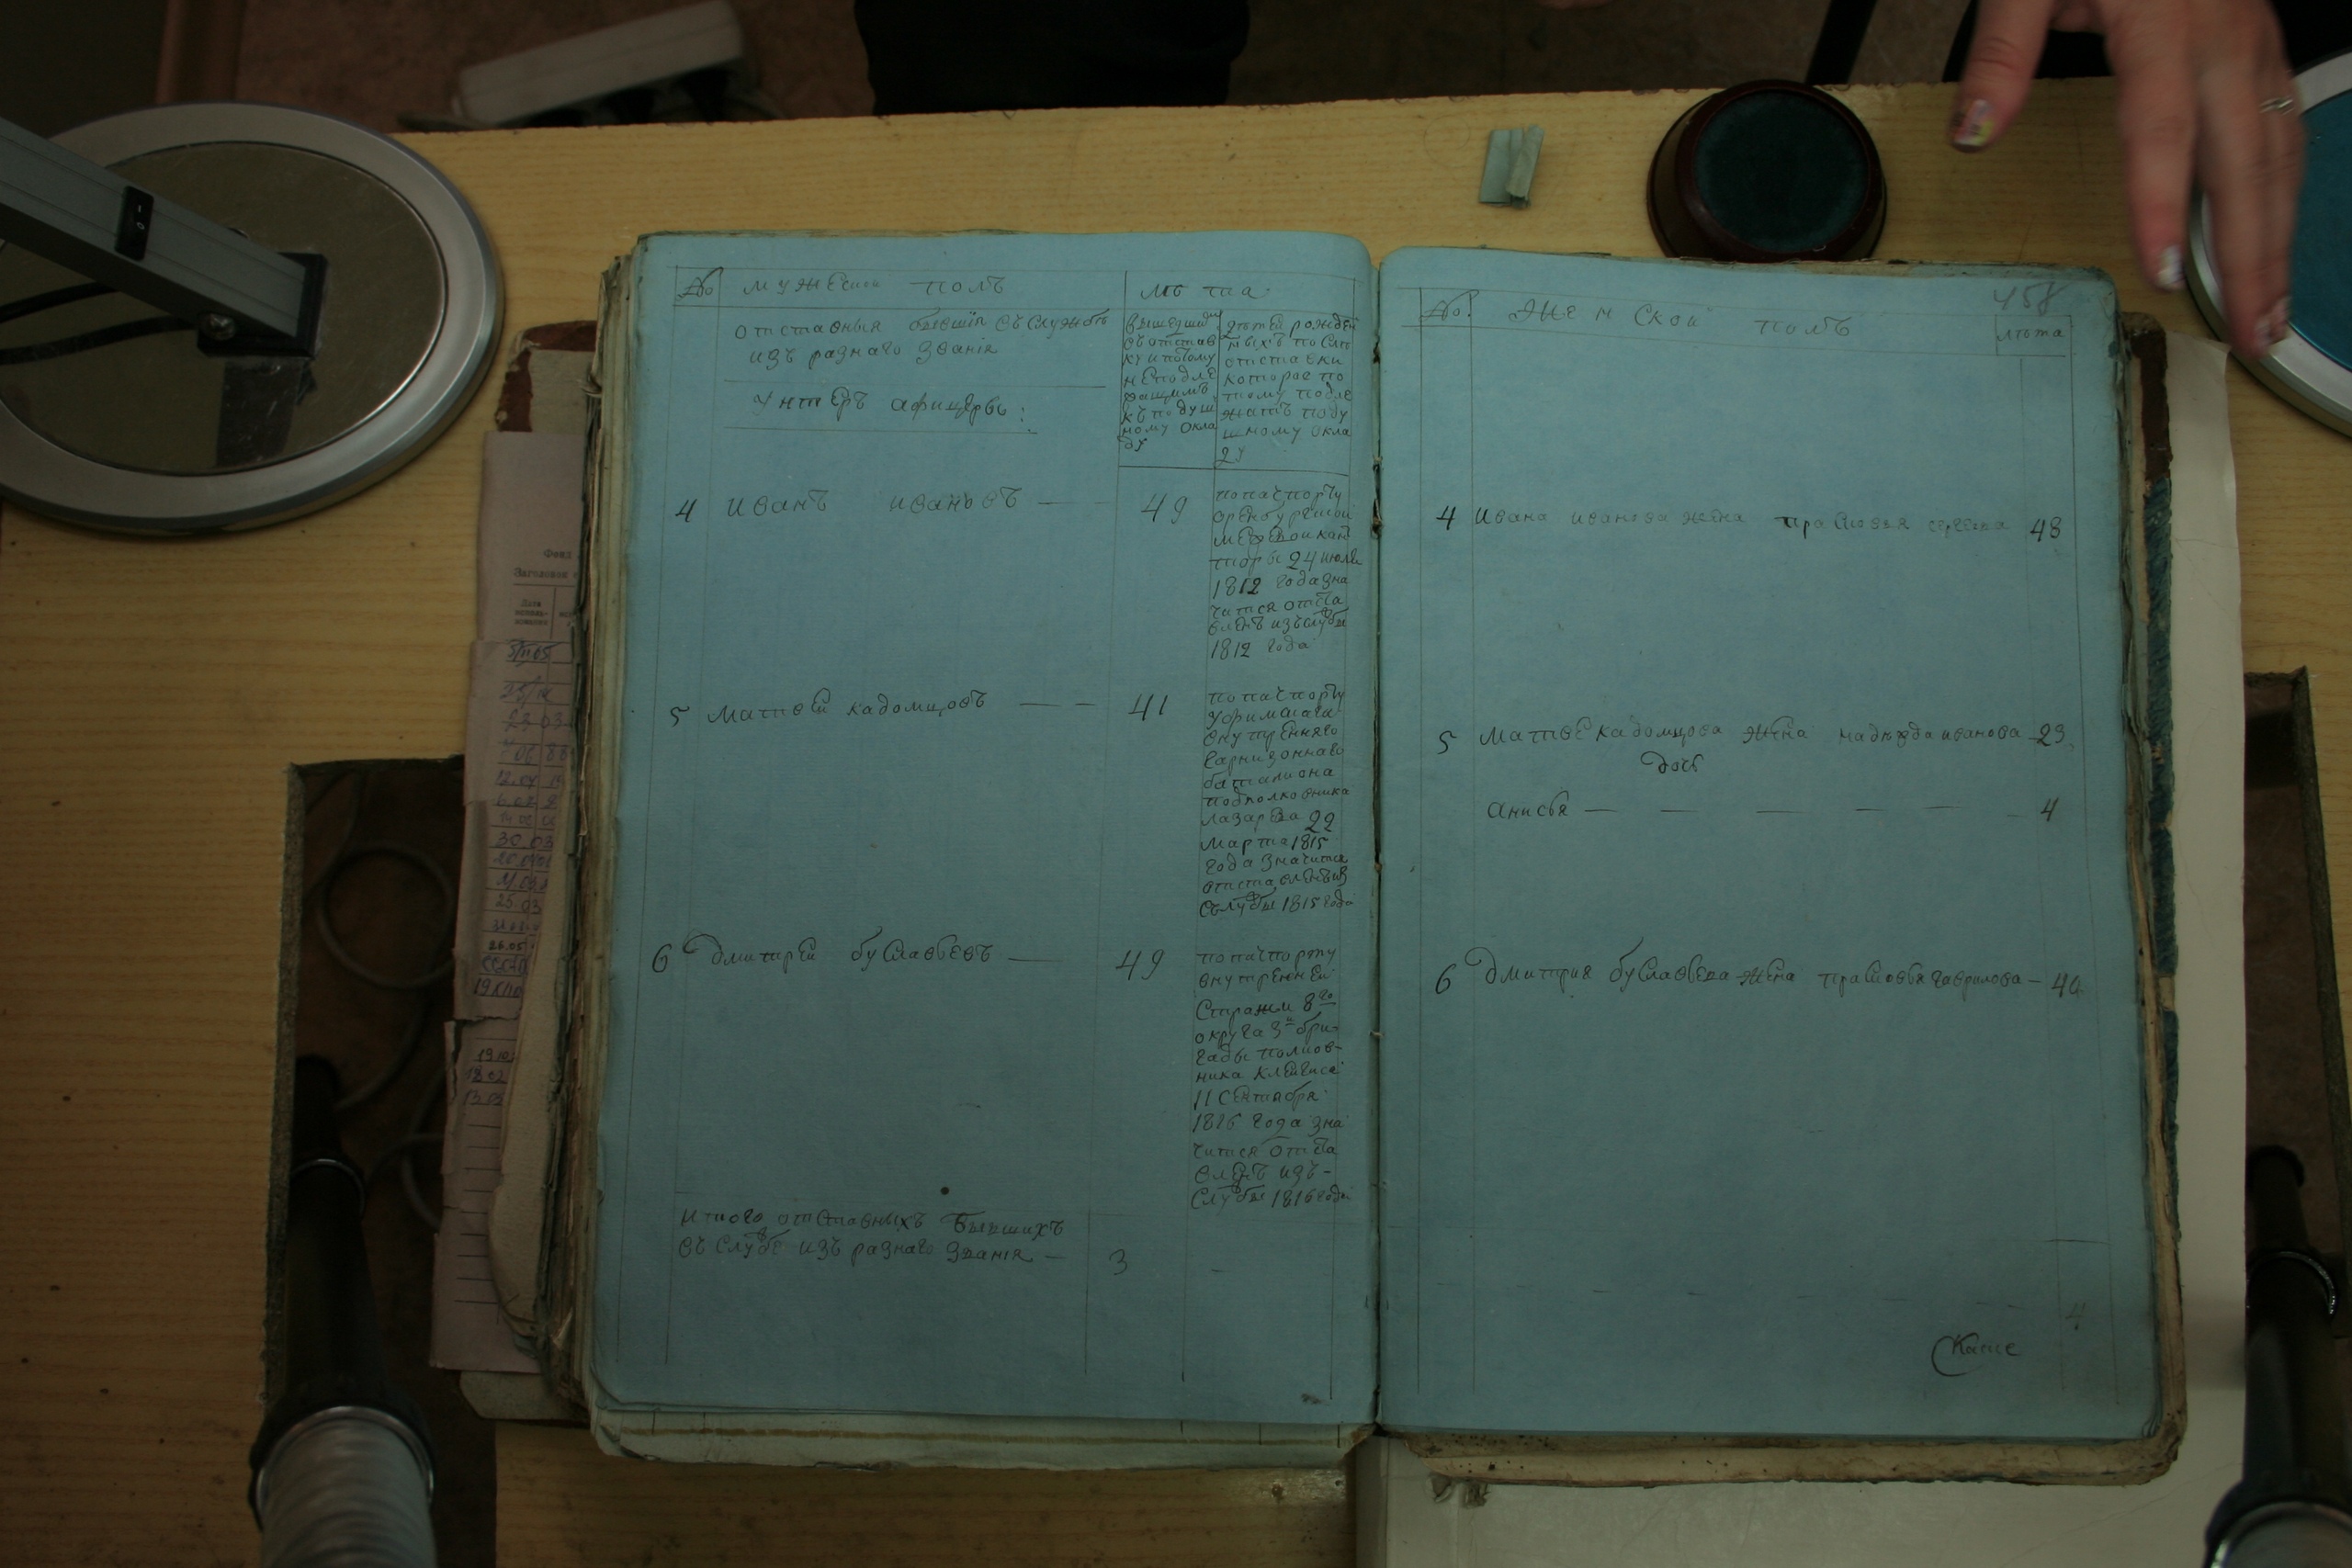 № мужеской полъ
лѣта
отставныя бывшiя въ службѣ
изъ разнаго званiя
унтеръ афицеръ:
вышедши
въ отстав
ку и потому
неподле
жащимъ
къ подуш
ному окла
ду
дѣтей рожден
ныхъ послѣ
отставки
которое по
тому подле
жатъ поду
шному окла
ду
4 Иванъ ивановъ — 49
попаспорту
оренбургской
межевой кан
торы 24 июля
1812 года зна
чится отста
вленъ изъ службы
1812 года
5 Матвей кадомцовъ — — 41
попаспорту
Уфимскаго
внутренняго
гарнизоннаго
баталиона
подполковника
лазарева 22
марта 1815
года значится
отставленъ из
службы 1815 года
6 Дмитрей буславьевъ — 49
попаспорту
внутренней
Стражи 8го
округа 3й бри-
гады полков-
ника
11 Сентября
1816 года зна
чится отста
вленъ изъ-
Службы 1816 года
Итого отставныхъ бывшихъ
въ службе изъ разнаго званiя — 3 -
458
№ женской полъ
лѣта
4 Ивана иванова жена прасковья сергеева 43
5 Матвея кадомцова жена надежда иванова 29
дочь
анисья — — — — — 4
6 Дмитрия буславьева жена прасковья гаврилова — 40
4
Фонд
Заголовок
Дата
исполь-
зования
30.03
25.03
26.05
19.10
18.02
13.03